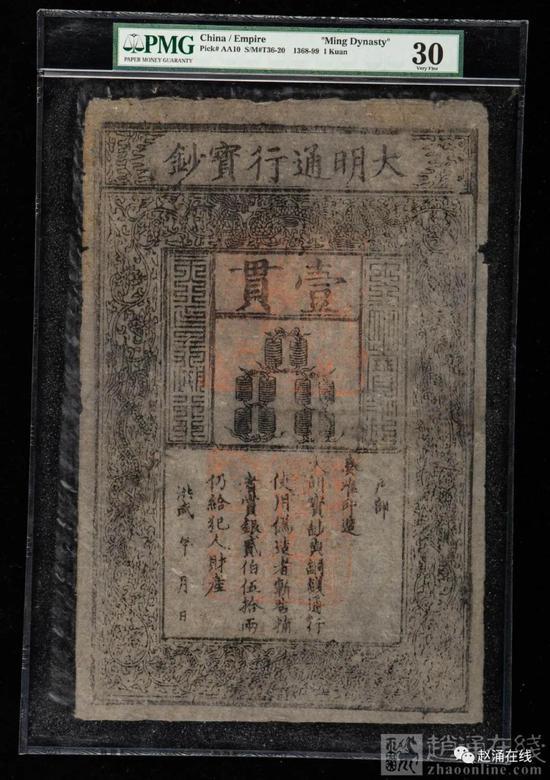 PMG
PAPER MONEY GUARANTY
China / Empire "Ming Dynasty"
Pick# AA10 S/M#T36-20 1368-99 1 Kuan
30
Very Fine
大明通行寶鈔
壹貫
戶部
奏准印造
大明寶鈔與銅錢通行
使用偽造者斬告捕
者賞銀貳伯伍拾兩
仍給犯人財產
洪武 年 月 日
趙涌在线
zhaoonline.com
赵涌在线